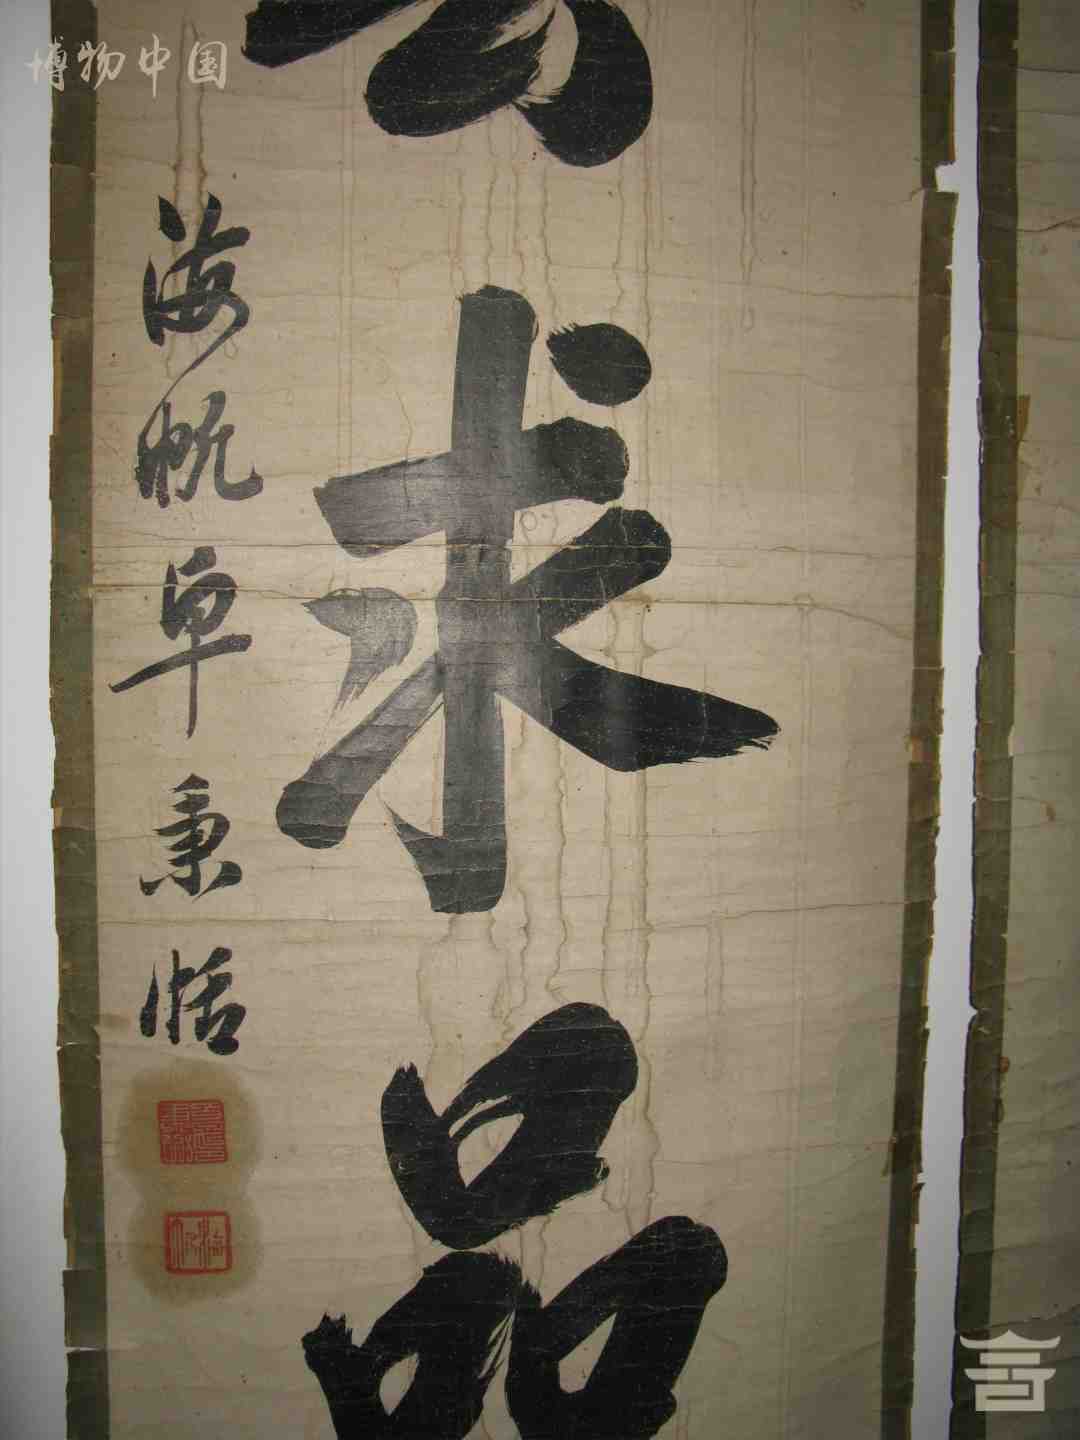 博物中国
求品
海帆卓秉恬